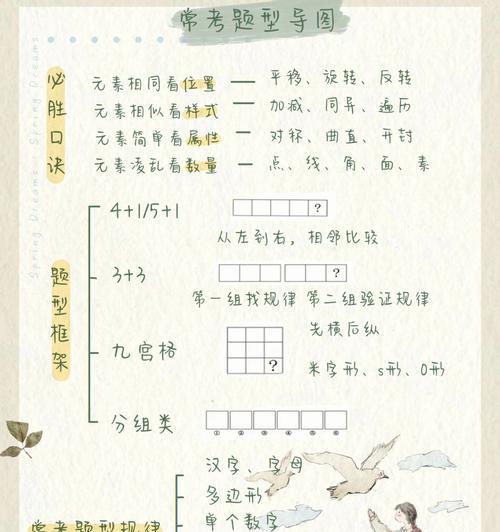 常考题型导图
必胜口诀
元素相同看位置 — 平移、旋转、反转
元素相似看样式 — 加减、同异、遍历
元素简单看属性 — 对称、曲直、开封
元素凌乱看数量 — 点、线、角、面、素
题型框架
4+1/5+1
?
从左到右，相邻比较
3+3
?
第一组找规律 第二组验证规律
九宫格
?
先横后纵
米字形、s形、O形
分组类
① ② ③ ④ ⑤ ⑥
汉字、字母
多边形
单个数字
常考题型规律
Spring Dreams
Spring Dreams